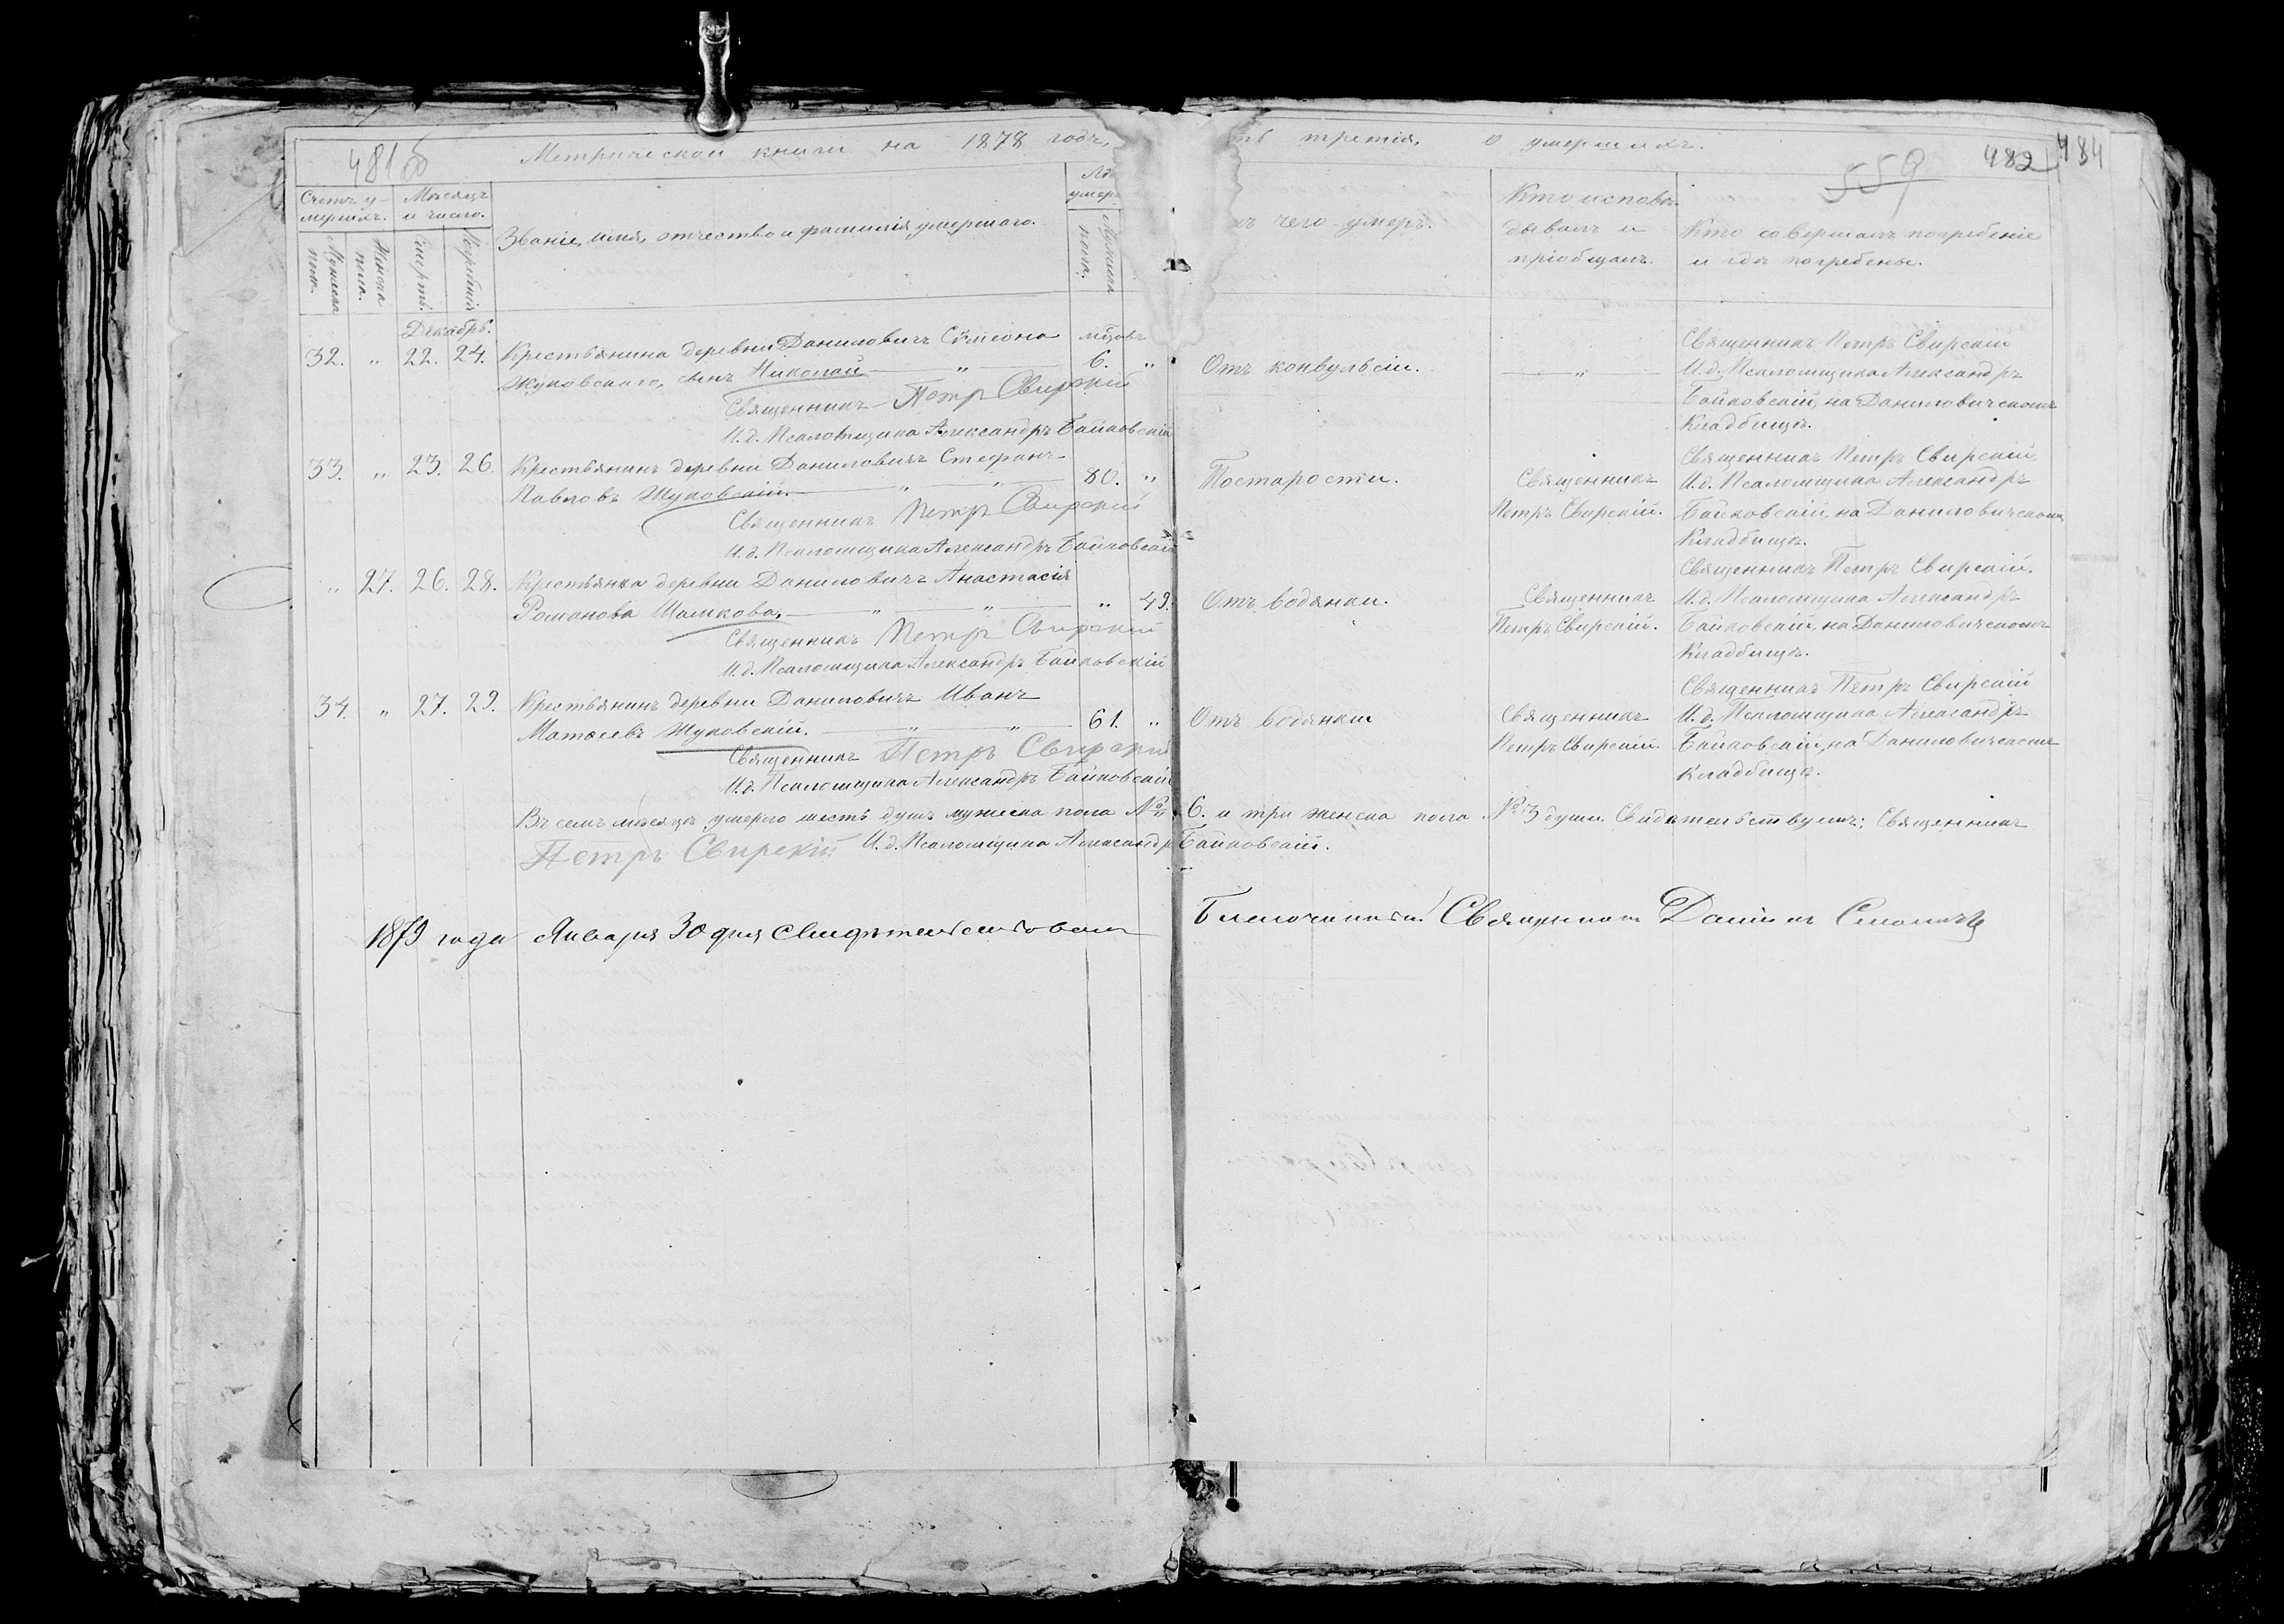 481 об
Метрической книги на 1878 годъ,
Счетъ у-
мершихъ.
Мѣсяцъ
и число.
Мужеска
пола.
Женска
пола.
Смерть.
Погребенія
Званіе, имя, отчество и фамилія умершаго.
Лѣ
умер
Мужеска
пола.
Декабрь.
32. „ 22. 24. Крестьянина деревни Даниловичъ Сѵмеона
Жуковскаго, сынъ Николай „ 6. „
Священникъ Петръ Свирскій
И.д. Псаломщика Александръ Байковскій
33. „ 23. 26. Крестьянинъ деревни Даниловичъ Стефанъ
Павловъ Жуковскій. „ „ 80. „
Священникъ Петръ Свирскій
И.д. Псаломщика Александръ Байковскій
„ 27. 26. 28. Крестьянка деревни Даниловичъ Анастасія
Романова „ „ „ 49.
Священникъ Петръ Свирскій
И.д. Псаломщика Александръ Байковскій
34. „ 27. 29. Крестьянинъ деревни Даниловичъ Иванъ
Матѳеевъ Жуковскій. „ „ 61. „
Священникъ Петръ Свирскій
И.д. Псаломщика Александръ Байковскій
Въ семъ мѣсяцѣ умерло шесть душъ мужеска пола №
Петръ Свирскій И.д. Псаломщика Александръ
1879 года Января 30 дня свидѣтельствовалъ
ть третія, о умершихъ.
559
482
484
чего умеръ.
Кто исповѣ-
дывалъ и
пріобщалъ.
Кто совершалъ погребеніе
и гдѣ погребены.
Отъ конвульсіи.
„
Священникъ Петръ Свирскій
И.д. Псаломщика Александръ
Байковскій, на Даниловичскомъ
Кладбищѣ.
Постарости.
Священникъ
Петръ Свирскій.
Священникъ Петръ Свирскій,
И.д. Псаломщика Александръ
Байковскій, на Даниловичскомъ
Кладбищѣ.
Отъ водянки.
Священникъ
Петръ Свирскій.
Священникъ Петръ Свирскій,
И.д. Псаломщика Александръ
Байковскій, на Даниловичскомъ
Кладбищѣ.
Отъ водянки
Священникъ
Петръ Свирскій.
Священникъ Петръ Свирскій
И.д. Псаломщика Александръ
Байковскій, на Даниловичскомъ
Кладбищѣ.
6. и три женска пола №3 души. Свидѣтельствуемъ: Священникъ
Байковскій.
Благочинный Священникъ Даніилъ